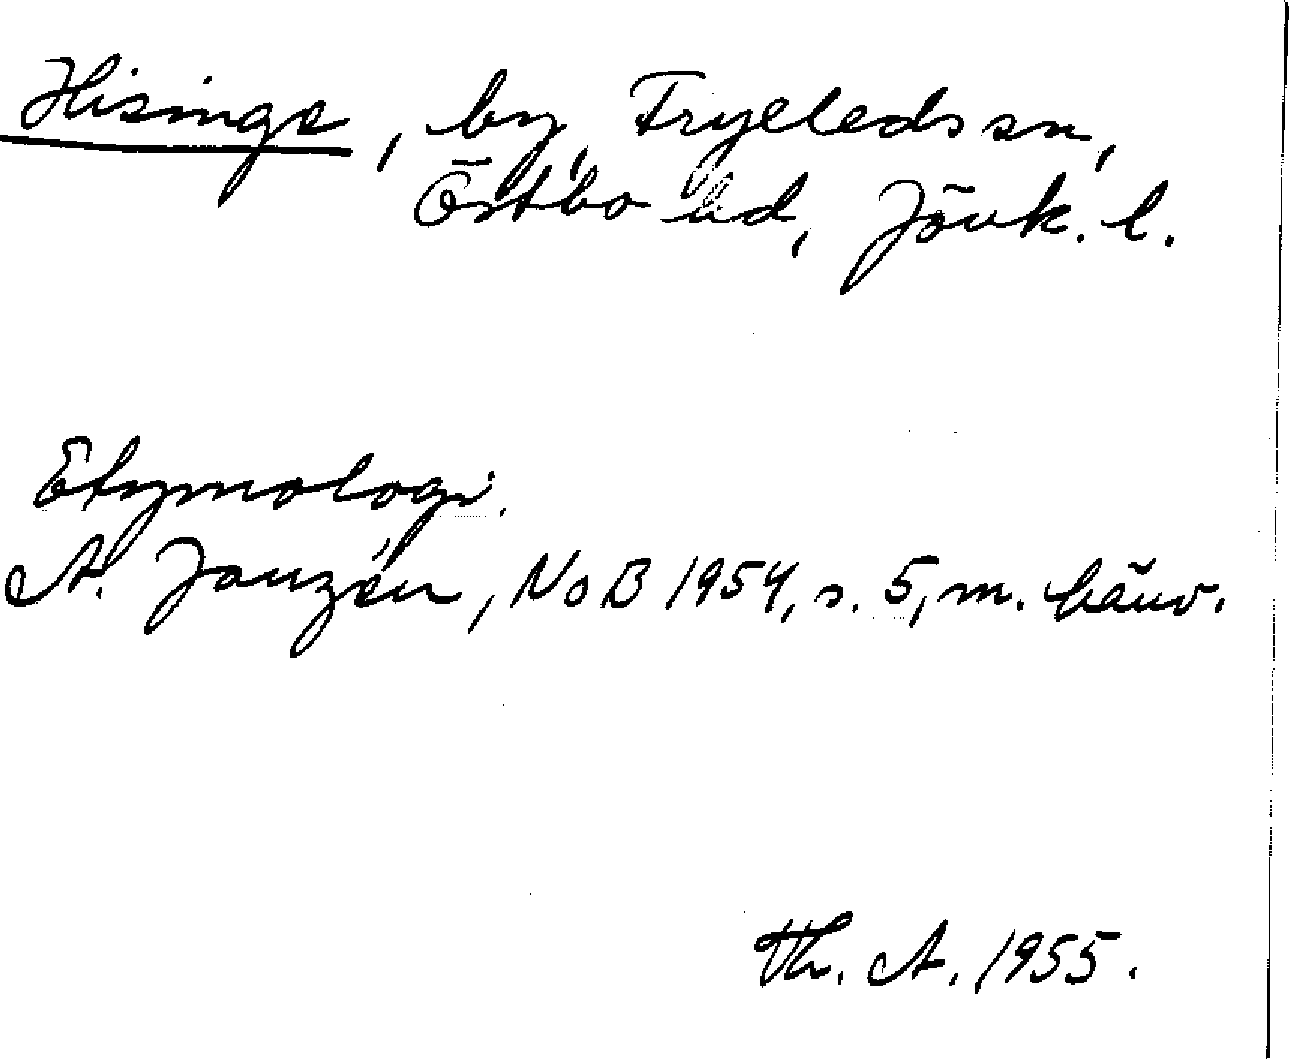 Hisinge, by, Fryeleds sn,
Östbo hd, Jönk. l.
Etymologi.
A. Janzén, NoB 1954, s. 5, m. hänv.
Th. A. 1955.